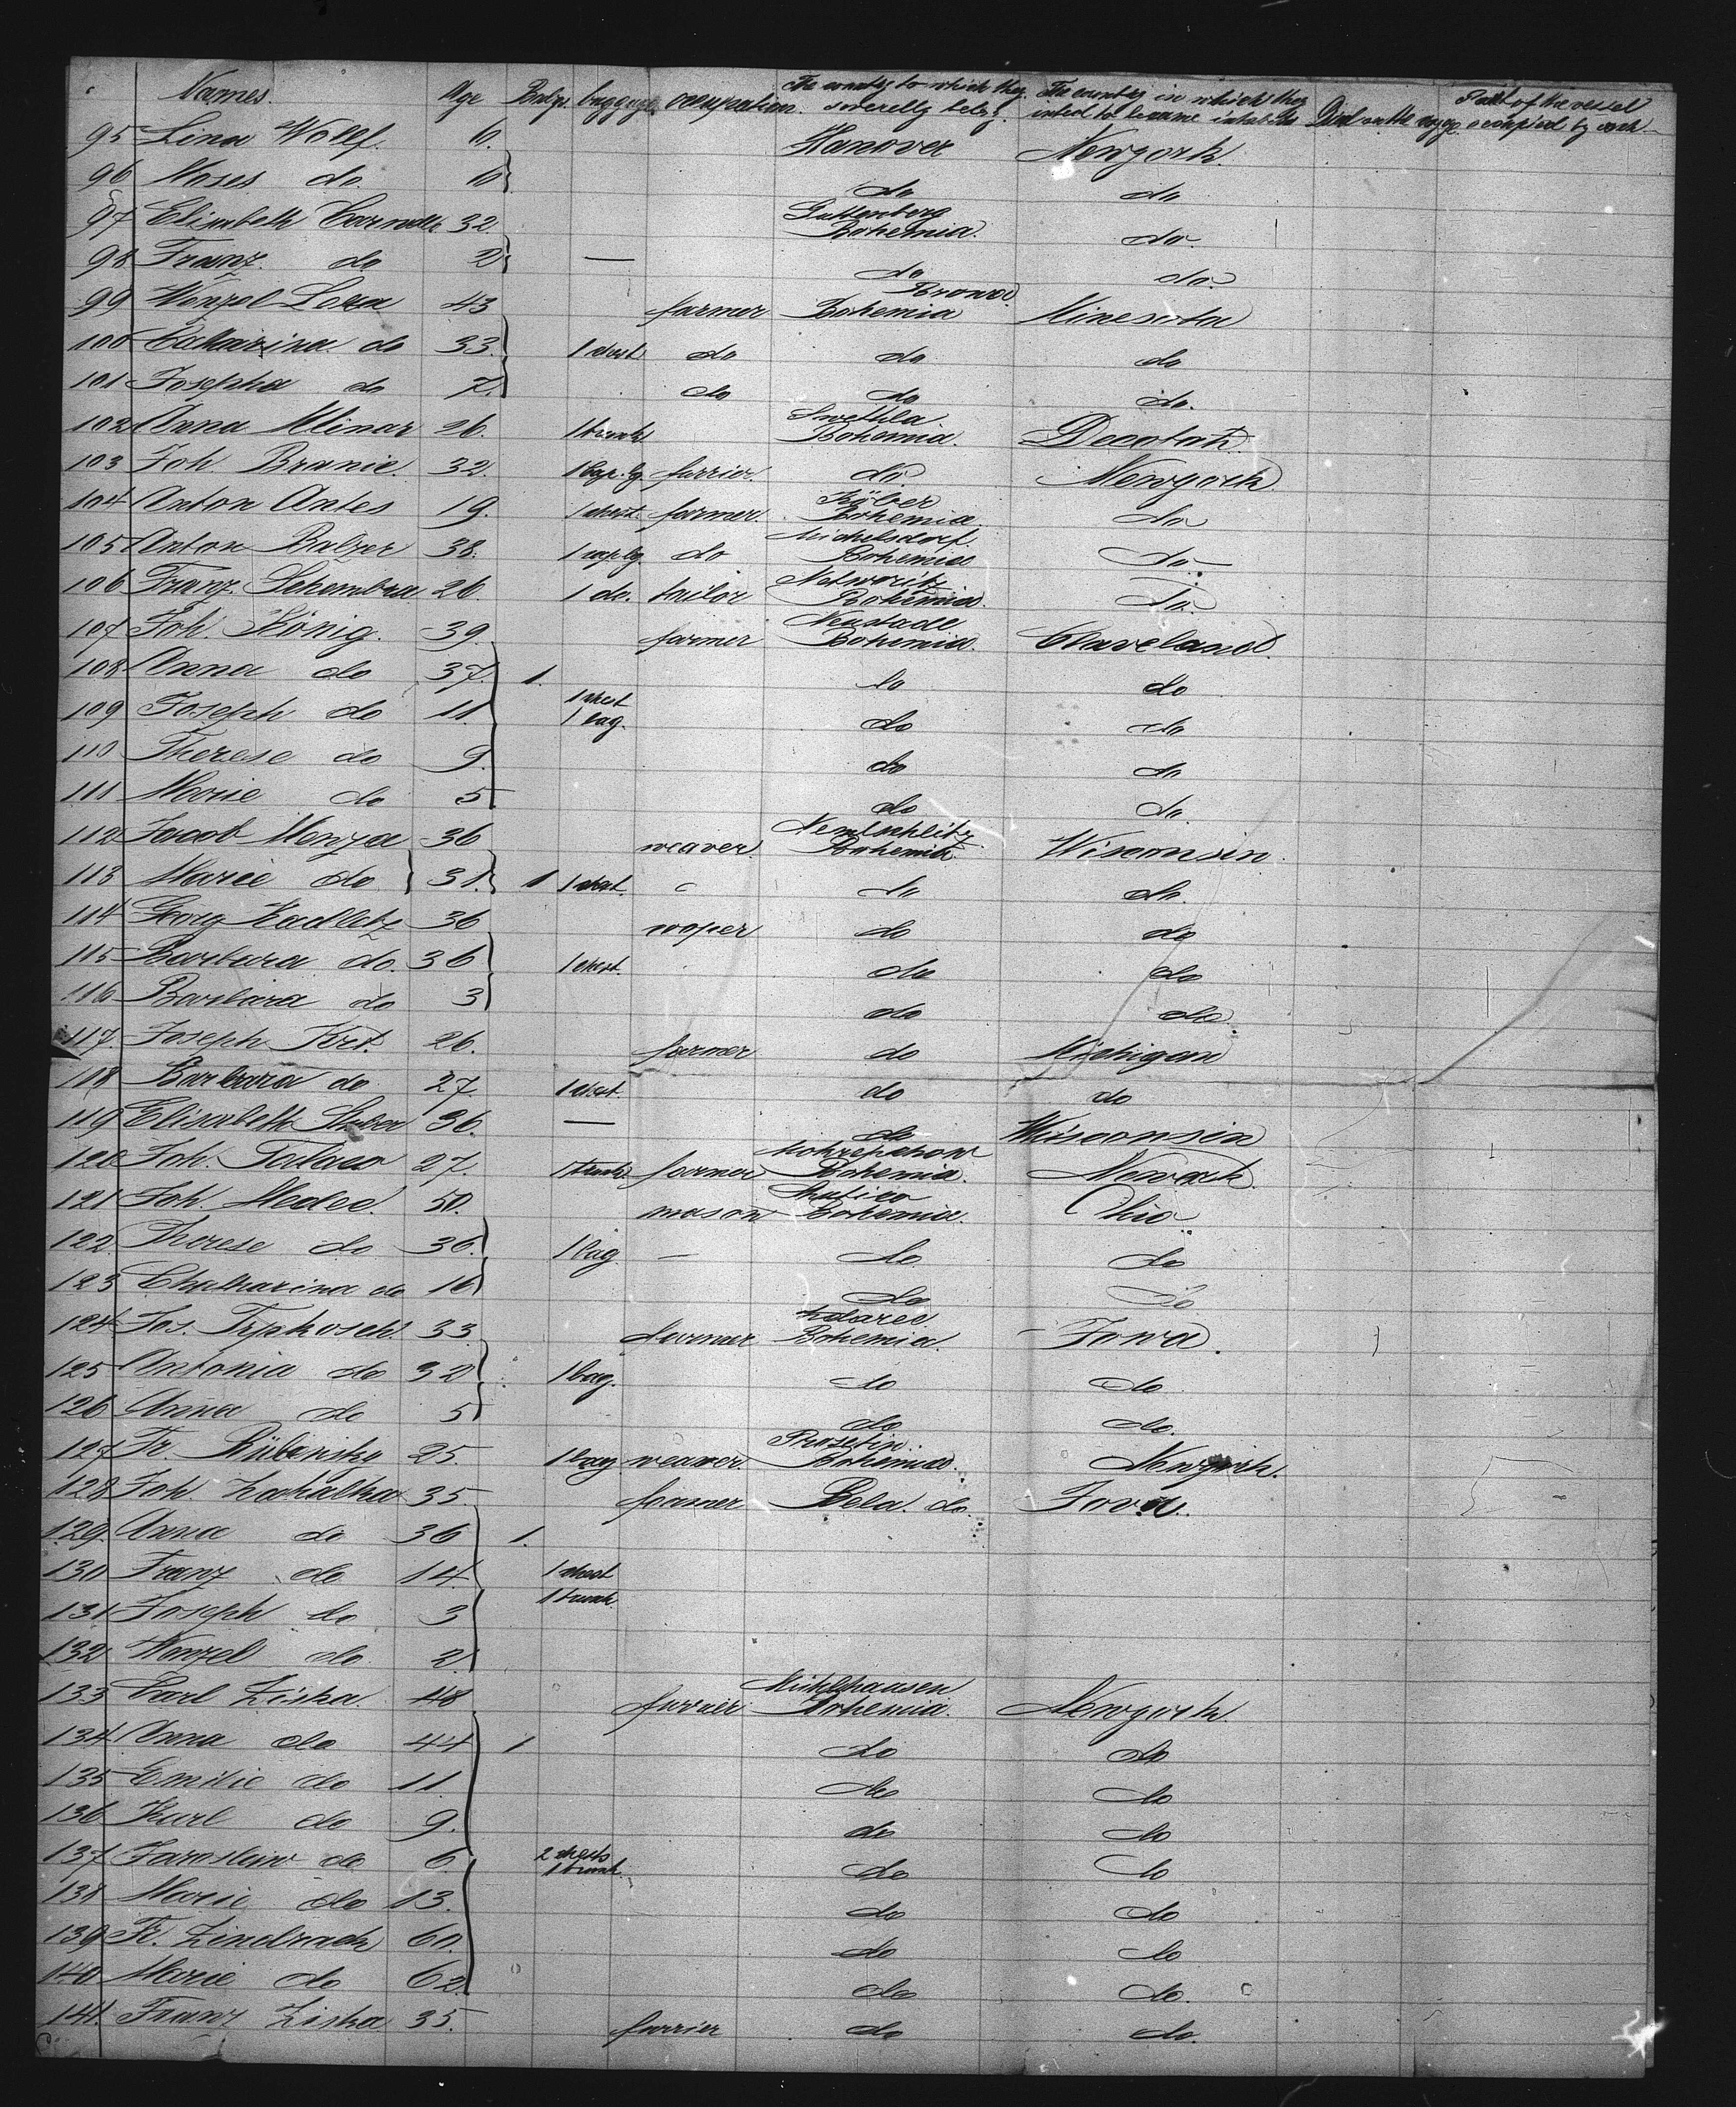 Names. Age baggage occupation. The country to which they severally belong. The country in which they intend to become inhabitants Died on the voyage Part of the vessel occupied by each
95 Lina Wolff. 6. Hanover Newyork.
96 Moses do. do do
97 Elisabeth 32. Bohemia. do.
98 Franz do 2 — do do.
99 Wenzel Lexa 43 farmer Bohemia Minesota
100 Catharina do 33. 1 chest do do do
101 Josepha do 7. do do do.
102 Anna Mlinar 26. 1 trunk Bohemia. Decotah
103 Joh. Branic. 32. furrier. do. Newyork.
104 Anton Antes 19. 1 chest. farmer. Bohemia. do
105 Anton Balzer 38. do Michelsdorf. Bohemia do
106 Franz Schembra 26. 1 do. tailor Networitz Bohemia. do.
107 Joh. König. 39. farmer Neustadt Bohemia. Claveland.
108 Anna do 37. 1. do do
109 Joseph do 11 1 chest 1 bag. do do
110 Therese do 9. do do
111 Marie do 5 do do.
112 Jacob Menza 36 weaver. Bohemia. Wisconsin.
113 Marie do 31. 1 1 chest. do do.
114 Georg Kadletz 36 do do
115 Barbara do. 36 1 chest. do do
116 Barbara do 3 do do.
117. Joseph Krt. 26. farmer do Michigan
118 Barbara do 27. 1 chest. do do
119 Elisabeth 36. — do Wisconsin
120 Joh. 27. 1 trunk farmer Bohemia. Newark.
121 Joh. 50. mason Bohemia. Ohio
122 Therese do 36. 1 bag — do do
123 Chatharina do 16 do do
124 Jos. 33. farmer Bohemia. Iowa.
125 Antonia do 32 1 bag. do do
126 Anna do 5 do do.
127 Fr. 25. 1 bag weaver. Prosetin. Bohemia. Newyork.
128 Joh. Zahalka 35. farmer Bela. do. Iova.
129. Anna do 36 1.
130 Franz do 14. 1 chest
131 Joseph do 3 1 trunk.
132 Wenzel do 2.
133 Carl Ziska. 48 furrier Mühlhausen Bohemia. Newyork.
134 Anna do 44 1 do do
135 Emilie do 11. do do
136 Karl do 9. do do
137 Jaroslaw do 6 2 chests 1 trunk. do do
138 Marie do 13. do do
139 Fr. 60. do do
140 Marie do 62. do do.
141. Franz Ziska 35. furrier do do.